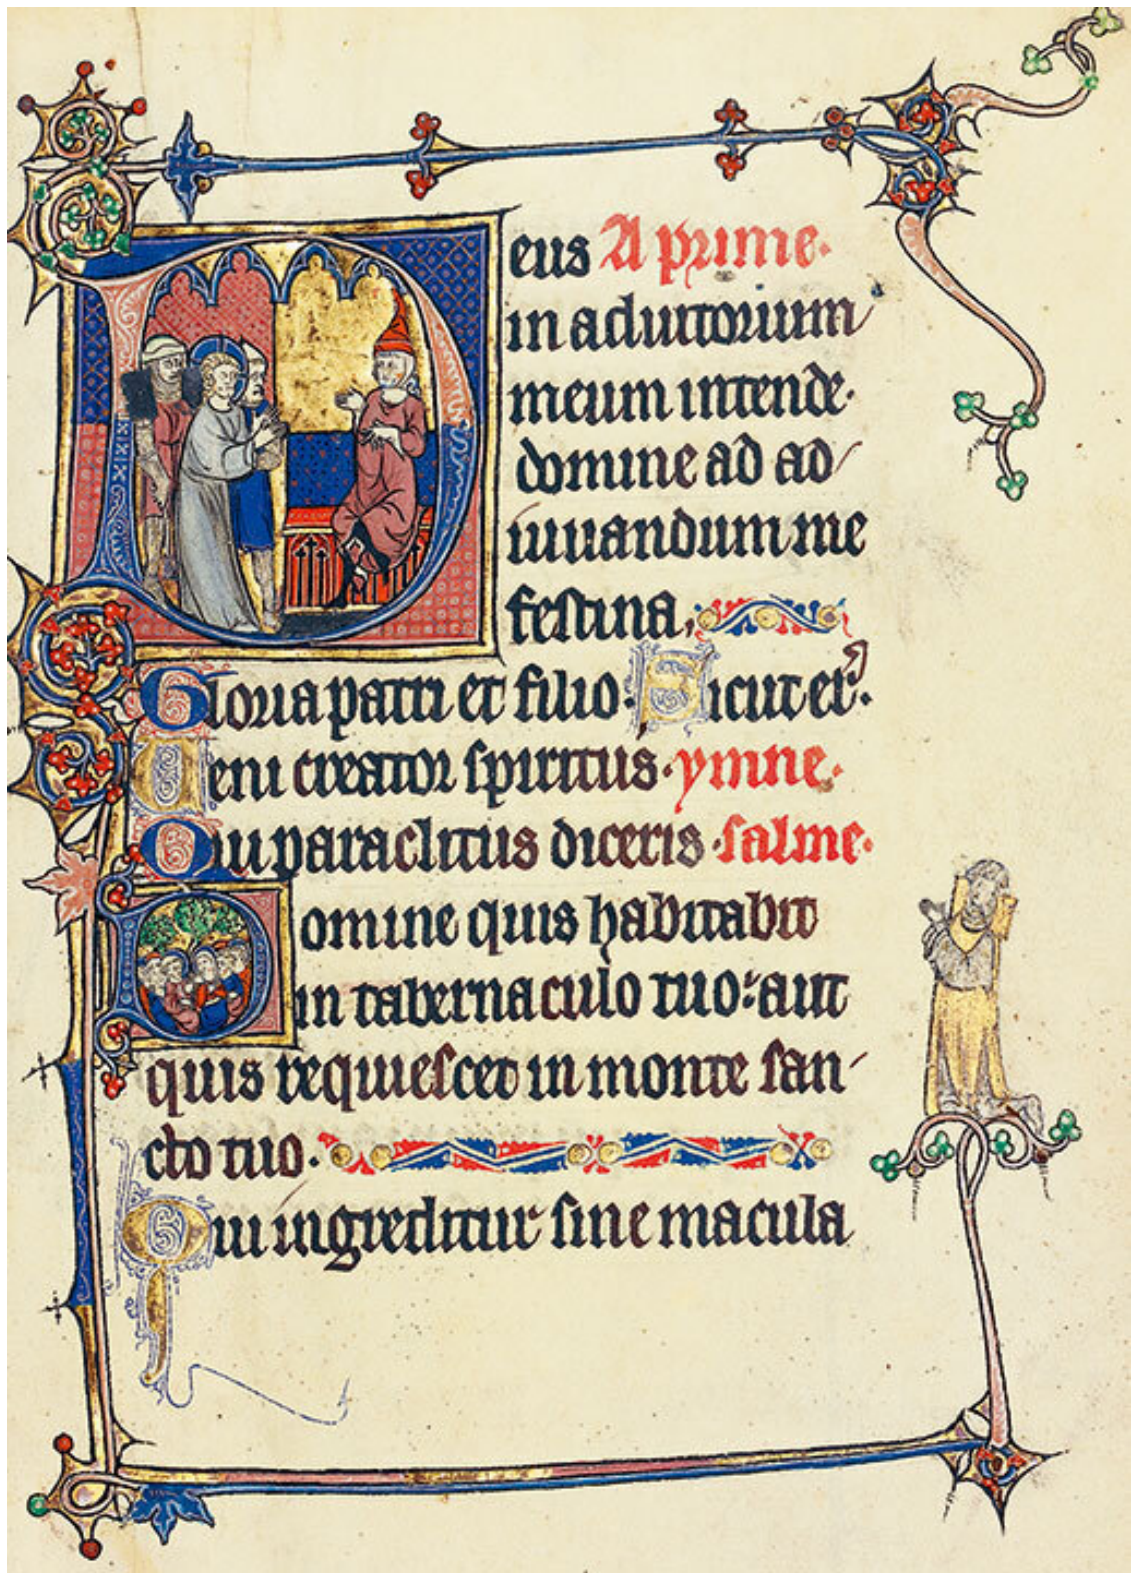 Deus A prime.
in adiutorium
meum intende.
domine ad ad
iuuandum me
festina.
Gloria patri et filio. Sicut er̾.
Ueni creator spiritus. ymne.
Qui paraclitus diceris. salme.
Domine quis habitabit
in tabernaculo tuo: aut
quis requiescet in monte san-
cto tuo.
Qui ingreditur sine macula